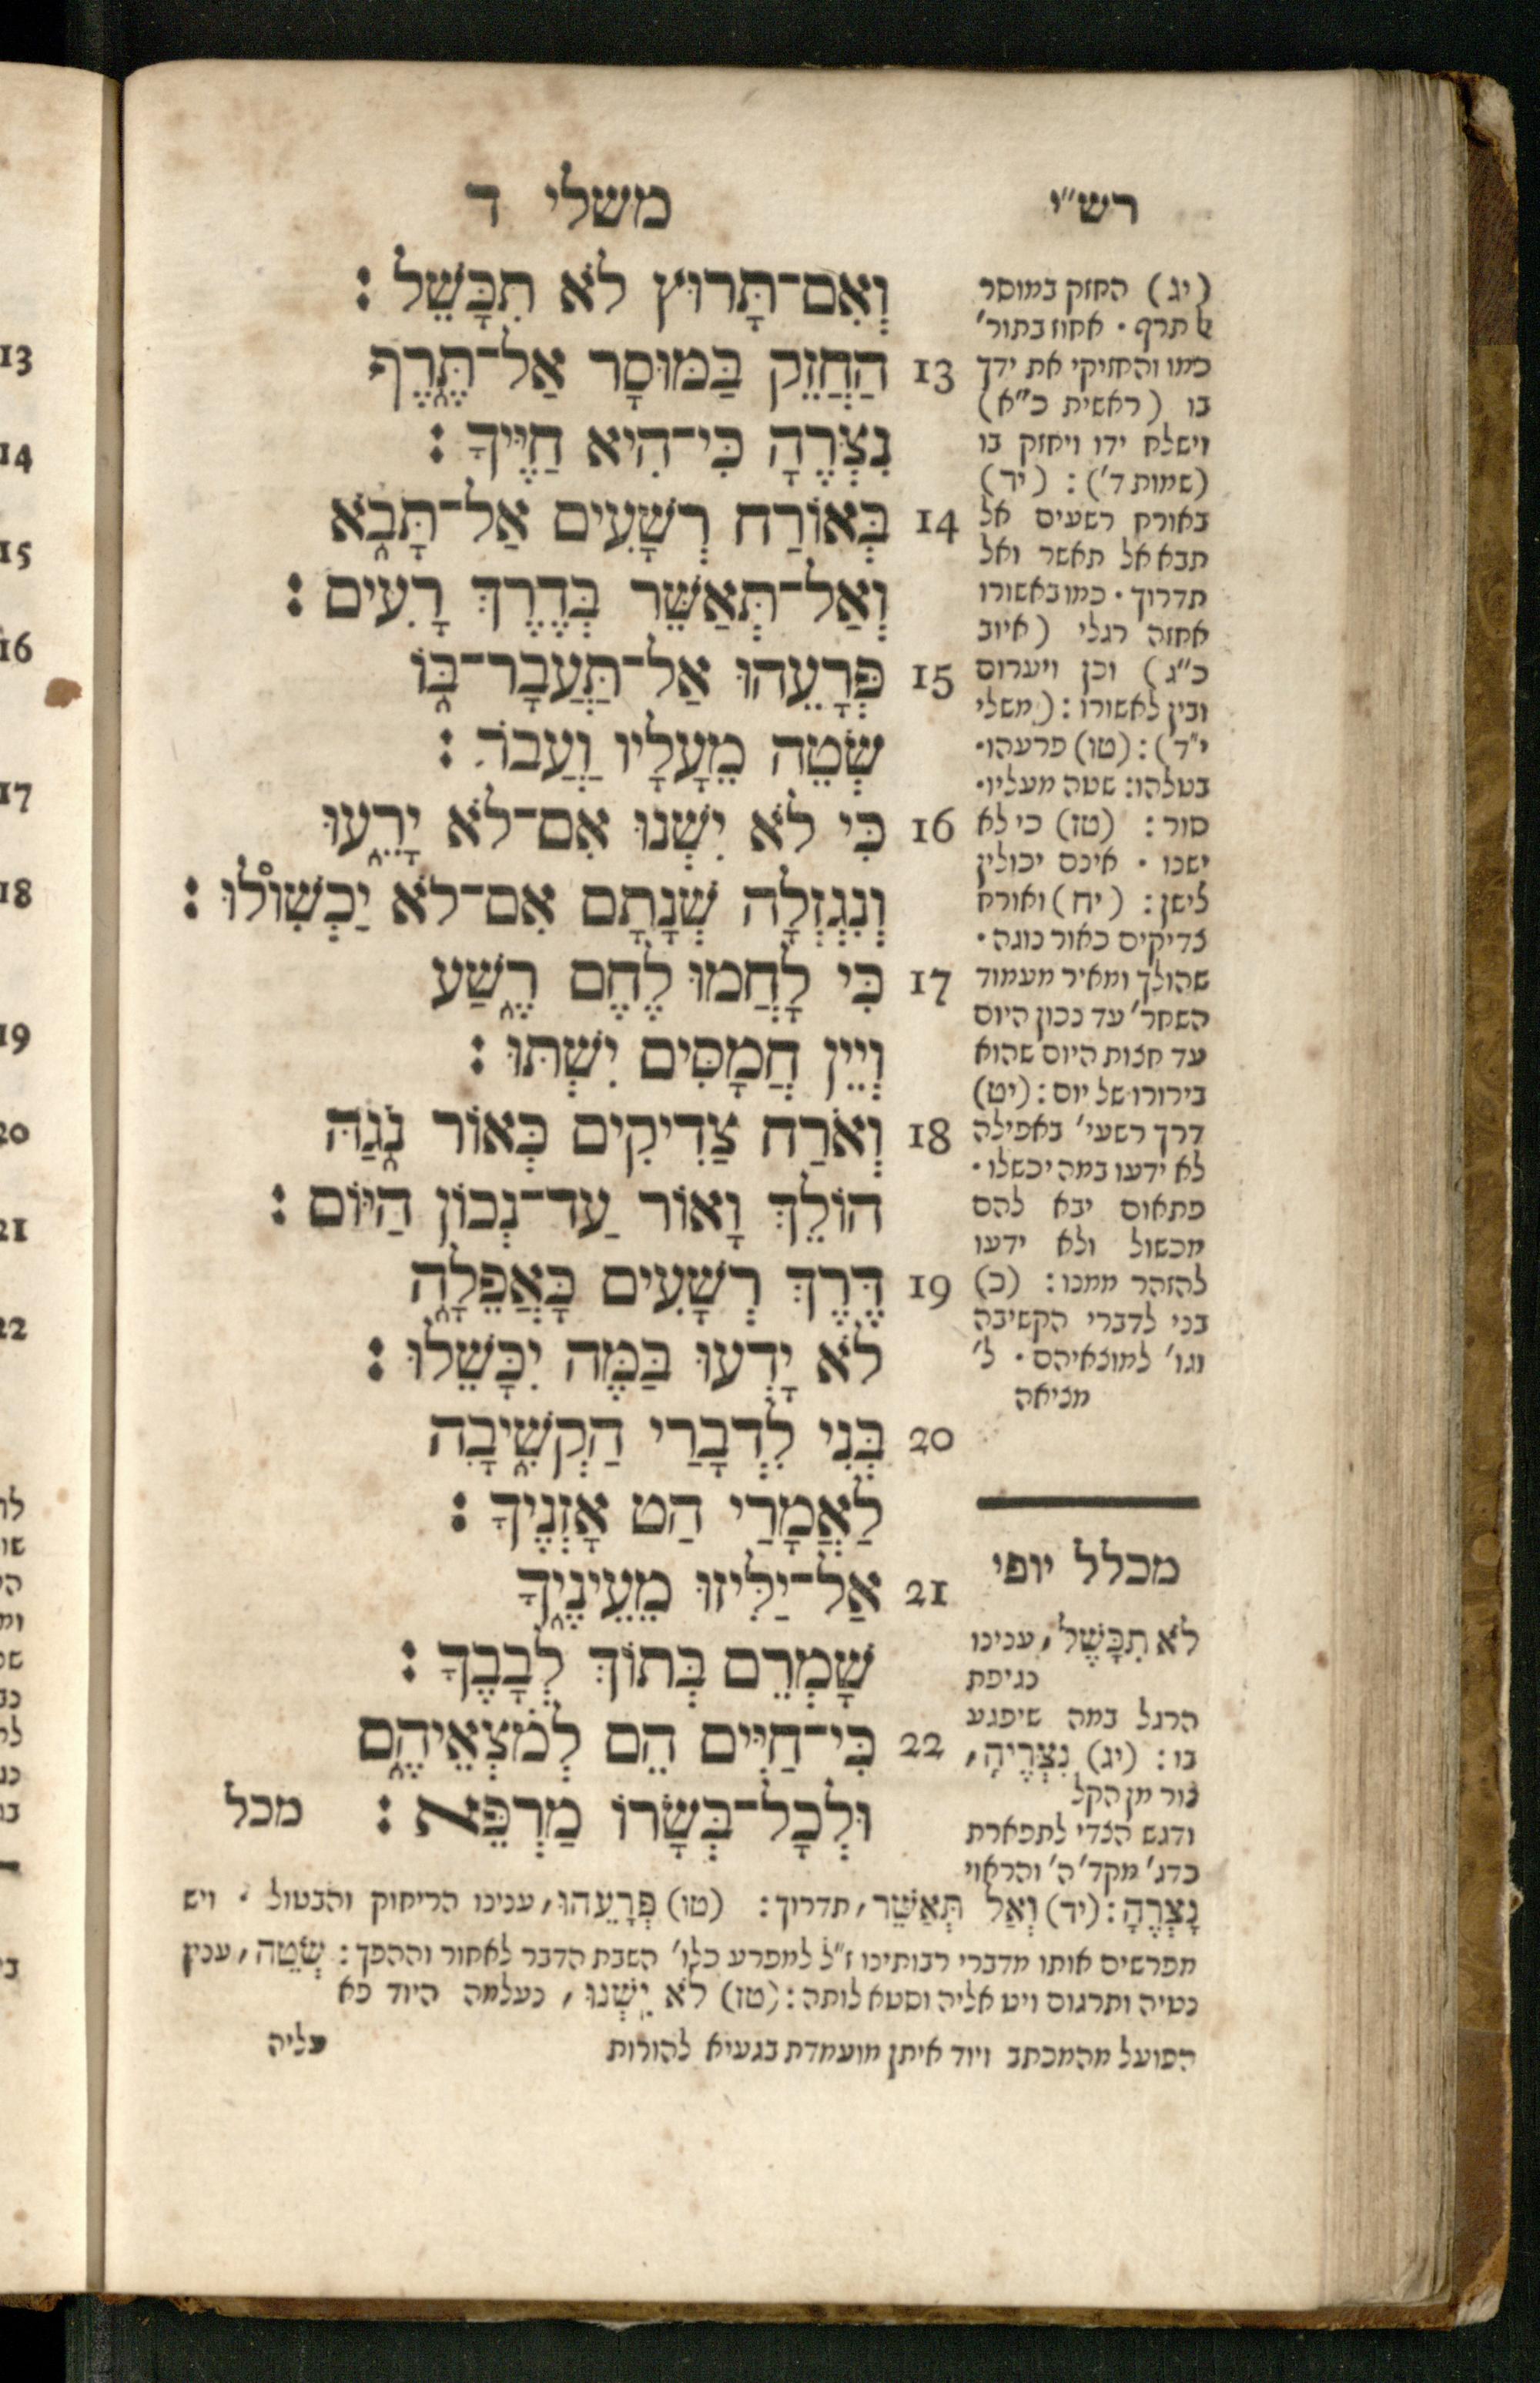 רש״י
משלי ד
וְאִם־תָּרוּץ לֹא תִכָּשֵׁל :
13 הַחֲזֵק בַּמּוּסָר אַל־תֶּרֶף
נִצְּרֶהָ כִּי־הִיא חַיֶּיךָ :
14 בְּאוֹרַח רְשָׁעִים אַל־תָּבֹא
וְאַל־תְּאַשֵּׁר בְּדֶרֶךְ רָעִים :
15 פְּרָעֵהוּ אַל־תַּעֲבָר־בּוֹ
שְׂטֵה מֵעָלָיו וַעֲבוֹר :
16 כִּי לֹא יִשְׁנוּ אִם־לֹא יָרֵעוּ
וְנִגְזְלָה שְׁנָתָם אִם־לֹא יַכְשִׁוֹלוּ :
17 כִּי לָחֲמוּ לֶחֶם רֶשַׁע
וְיֵין חֲמָסִים יִשְׁתּוּ :
18 וְאֹרַח צַדִיקִים כְּאוֹר נֹגַהּ
הוֹלֵךְ וָאוֹר עַד־נְכוֹן הַיּוֹם :
19 דֶּרֶךְ רְשָׁעִים כָּאֲפֵלָה
לֹא יָדְעוּ בַּמֶּה יִכָּשֵׁלוּ :
20 בְּנִי לִדְבָרַי הַקְשִׁיבָה
לַאֲמָרַי הַט אָזְנֶיךָ :
21 אַל־יַלִּיזוּ מֵעֵינֶיךָ
שָׁמְרֵם בְּתוֹךְ לְבָבֶךָ :
22 כִּי־חַיִּים הֵם לְמֹצְאֵיהֶם
וּלְכָל־בְּשָׂרוֹ מַרְפֵּא : מכל
(יג) החזק במוסר
אל תרף · אחוז בתור׳
כמו והחזיקי את ידך
בו (ראשית כ״א)
וישלח ידו ויחזק בו
(שמות ד׳) : (יד)
באורח רשעים אל
תבא אל תאשר ואל
תדרוך · כמו באשורו
אחזה רגלי (איוב
כ״ג) וכן ויערום
ובין לאשורו : (משלי
י״ד) : (טו) פרעהו ·
בטלהו : שטה מעליו ·
סור : (טז) כי לא
ישנו · אינם יכולין
לישן : (יח) ואורח
צדיקים כאור נוגה ·
שהולך ומאיר מעמוד
השחר׳ עד נכון היום
עד חצות היום שהוא
בירורו של יום : (יט)
דרך רשעי׳ באפילה
לא ידעו במה יכשלו ·
פתאום יבא להם
מכשול ולא ידעו
להזהר ממנו : (כ)
בני לדברי הקשיבה
וגו׳ למוצאיהם · ל׳
מציאה
מכלל יופי
לֹא תִכָּשֶׁל, ענינו
נגיפת
הרגל במה שיפגע
בו : (יג) נִצְּרֶיהָ,
צור מן הקל
ודגש הצדי לתפארת
כדג׳ מקד׳ ה׳ והראוי
נָצְרֶהָ : (יד) וְאַל תְּאַשֵּׁר, תדרוך : (טו) פְּרָעֵהוּ, ענינו הריחוק והבטול · ויש
מפרשים אותו מדברי רבותינו ז״ל למפרע כלו׳ השבת הדבר לאחור וההפך : שְׂטֵה, ענין
נטיה ותרגום ויט אליה וסטא לותה : (טז) לֹא יִשְׁנוּ, נעלמה היוד פא
הפועל מהמכתב ויוד איתן מועמדת בגעיא להורות עליה
13
14
15
16
17
18
19
20
21
22